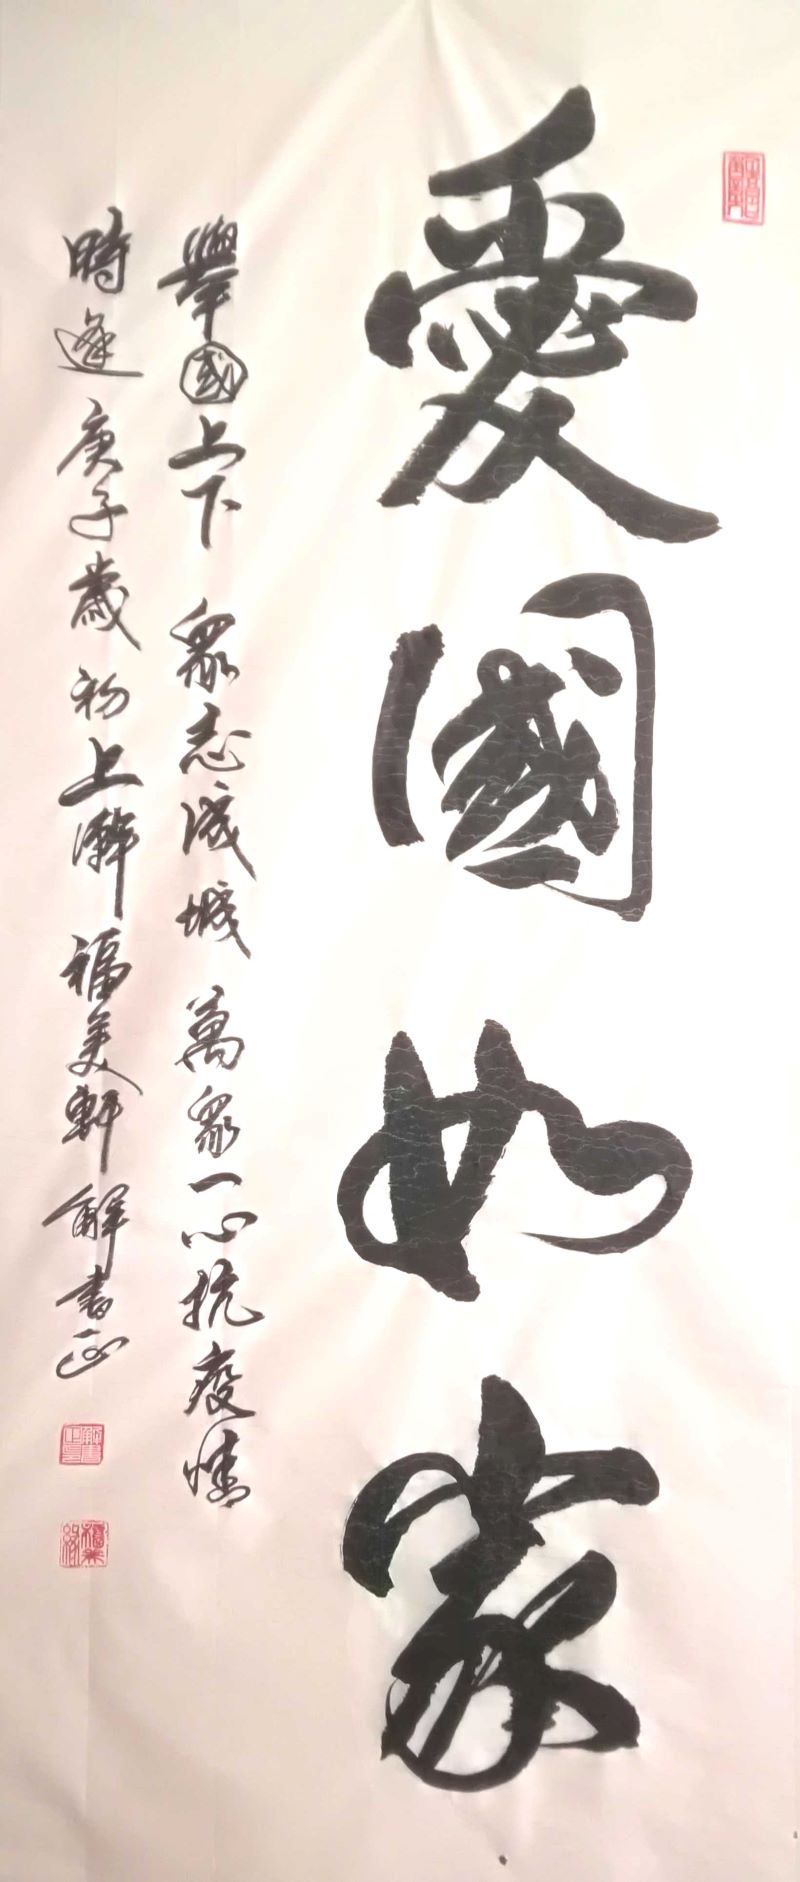 愛國如家
舉國上下 眾志成城 萬眾一心抗疫情
時逢庚子歲初上澣 福美軒 解書正